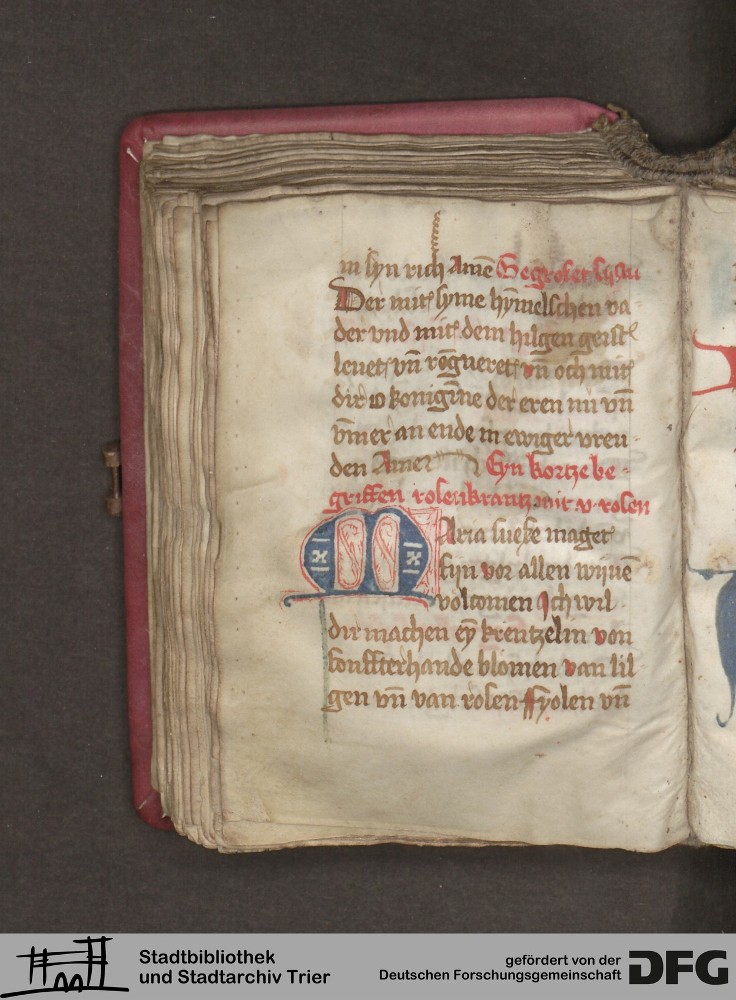 in syn rich Amē Gegroſet syſtu
Der mitꝭ ſyme hȳmelſchen va
der vnd mitꝭ dem hilgen geiſtꝭ
leuetꝭ vn̄ rōgneretꝭ vn̄ och mitꝭ
dir o konigīne der eren nu vn̄
v̄mer an ende in ewiger vreu⸗
den Amen Eyn kortze be⸗
griffen roſenkrantz mit v roſen
Maria ſueſze mager
ſijn vor allen wiuē
volcomen Ich wil
dir machen ey̅ krentzelin von
ſonffterhande blomen van lil
gen vn̄ van roſen ffyolen vn̄
Stadtbibliothek
und Stadtarchiv Trier
gefördert von der
Deutschen Forschungsgemeinschaft
DFG